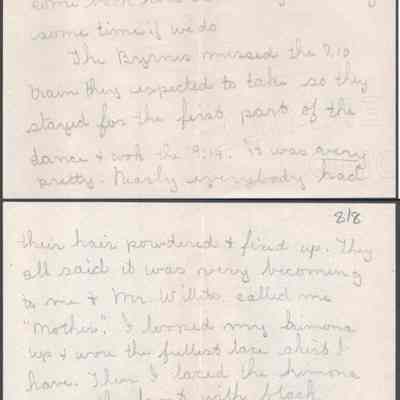 come back
some time if we do
The Byrnes missed the 7.10
train they expected to take so they
stayed for the first part of the
dance & took the 9:15. It was a very
pretty. Nearly everybody had
2/8
their hair powdered & fixed up. They
all said it was very becoming
to me & Mr. Willits called me
"Mother". I looped my kimona
up & wore the fullest lace skirt I
have. Then I laced the kimona
the front with black